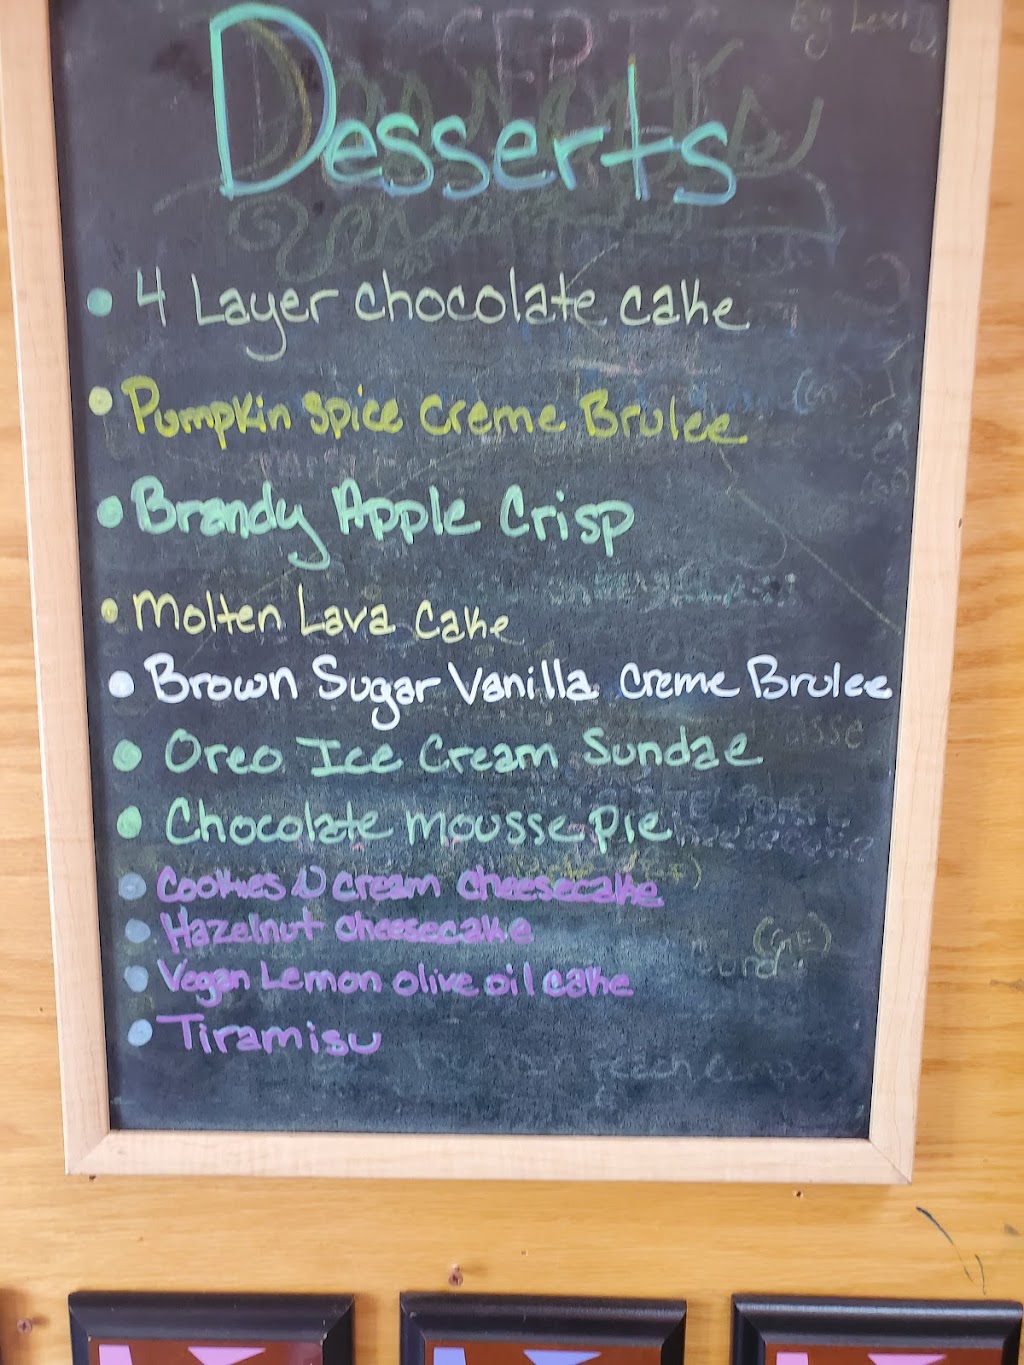 Desserts
• 4 Layer chocolate cake
• Pumpkin Spice Creme Brulee
• Brandy Apple Crisp
• Molten Lava Cake
• Brown Sugar Vanilla Creme Brulee
• Oreo Ice Cream Sundae
• Chocolate mousse pie
• Cookies N Cream Cheesecake
• Hazelnut Cheesecake
• Vegan Lemon olive oil cake
• Tiramisu
(GF)